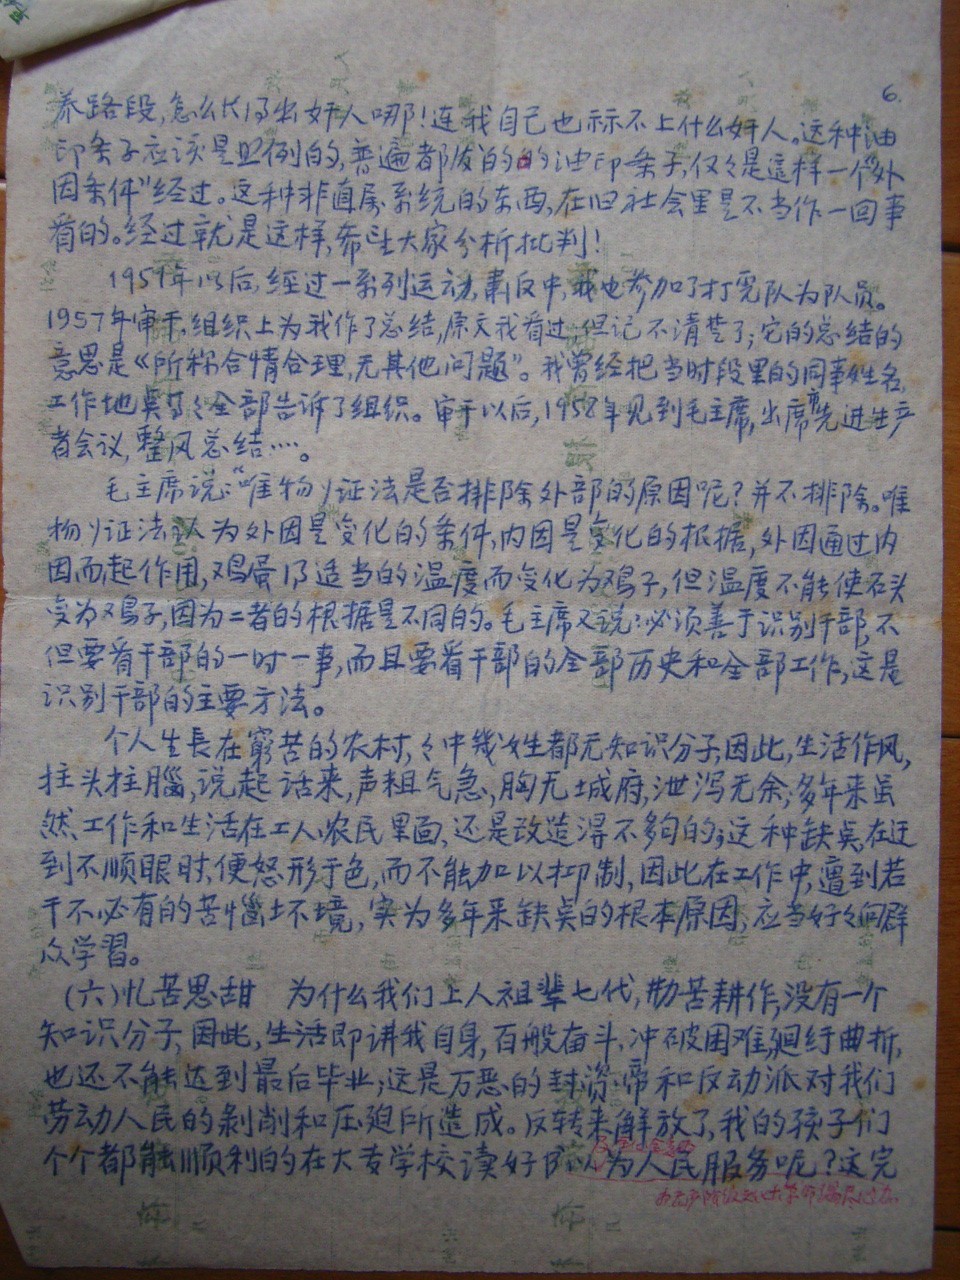 6.
养路段,怎么长得出奸人哪!连我自己也标不上什么奸人。这种油
印条子应该是照例的,普遍都发的的油印条子,仅々是這样一个"外
因条件"经过。这种非直属系统的东西,在旧社会里是不当作一回事
看的。经过就是这样,希望大家分析批判!
1951年以后,经过一系列运动,肃反中,我也参加了打宪队为队员。
1957年审干,组织上为我作了总结,原文我看过,但记不清楚了;它的总结的
意思是《所称合情合理,无其他问题》。我曾经把当时段里的同事姓名,
工作地点等々全部告诉了组织。审干以后,1958年见到毛主席,出席市先进生产
者会议,整风总结……。
毛主席说:"唯物辩证法是否排除外部的原因呢?并不排除。唯
物辩证法认为外因是变化的条件,内因是变化的根据,外因通过内
因而起作用,鸡蛋得适当的温度而变化为鸡子,但温度不能使石头
变为鸡子,因为二者的根据是不同的。毛主席又说:必须善于识别干部,不
但要看干部的一时一事,而且要看干部的全部历史和全部工作,这是
识别干部的主要方法。
个人生長在窮苦的农村,々中幾姓都无知识分子,因此,生活作风,
拄头拄腦,说起话来,声粗气急,胸无城府,泄泻无余;多年来虽
然工作和生活在工人农民里面,还是改造得不多向的;这种缺点在迂
到不顺眼时,便怒形于色,而不能加以抑制,因此在工作中,遭到若
干不必有的苦惱环境,实为多年来缺点的根本原因;应当好々向群
众学習。
(六)忆苦思甜 为什么我们上人祖辈七代,勤苦耕作,没有一个
知识分子,因此,生活即讲我自身,百般奋斗,冲破困难,廻纡曲折,
也还不能达到最后毕业;这是万恶的封资帝和反动派对我们
劳动人民的剥削和压迫所造成。反转来解放了,我的孩子们
个个都能顺利的在大专学校读好书以为人民服务呢?这完